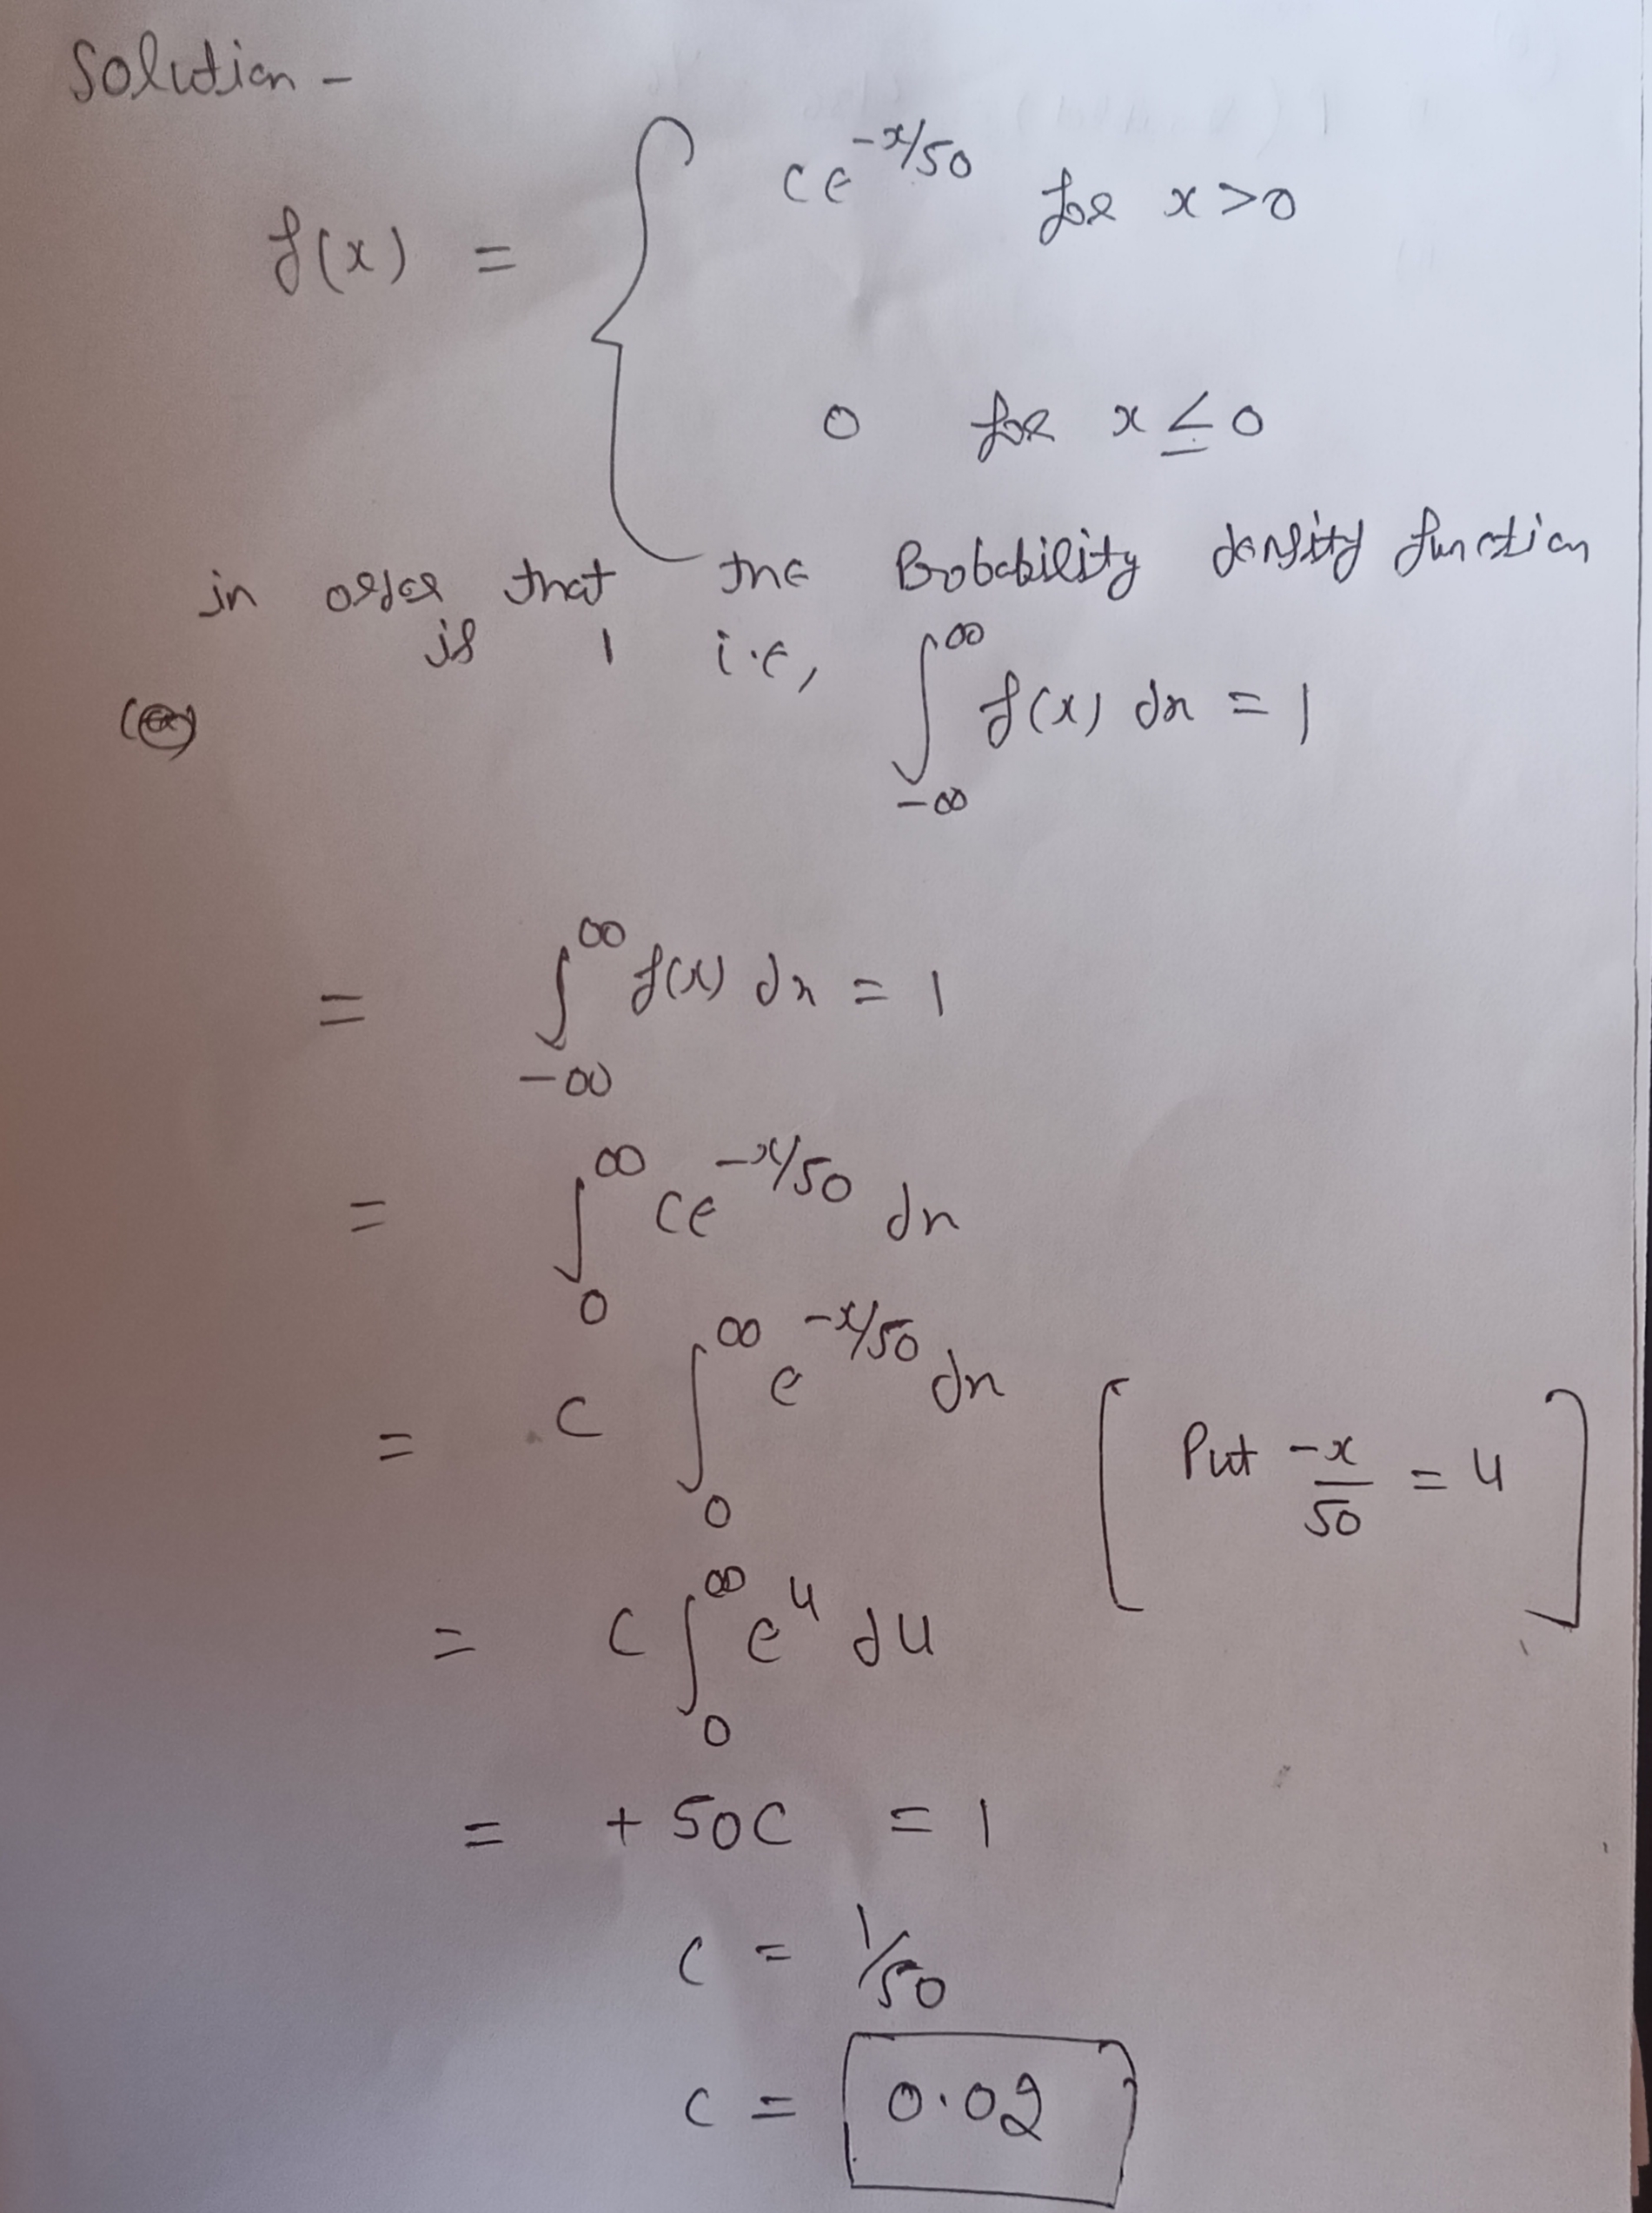 Solution -
f(x) = { ce^{-x/50} for x>0
0 for x ≤ 0
in order that the Probability density function
is 1 i.e, ∫_{-∞}^{∞} f(x) dx = 1
= ∫_{-∞}^{∞} f(x) dx = 1
= ∫_{0}^{∞} ce^{-x/50} dx
= c ∫_{0}^{∞} e^{-x/50} dx [Put -x/50 = u]
= c ∫_{0}^{∞} e^{u} du
= + 50c = 1
c = 1/50
c = 0.02